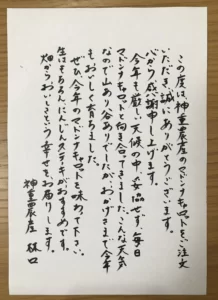 この度は、神重農産のマドンナキャロットをご注文
いただき、誠にありがとうございます。
心から感謝申し上げます。
今年も厳しい天候の中、妥協せず、毎日
マドンナキャロットと向き合ってきました。こんな天気
なので山あり谷ありでしたが、おかげさまで今年
もおいしく育ちました。
ぜひ、今年のマドンナキャロットを味わって下さい。
生はもちろん、にんじんステーキがおすすめです。
畑からおいしさという幸せをお届けします。
神重農産 林口